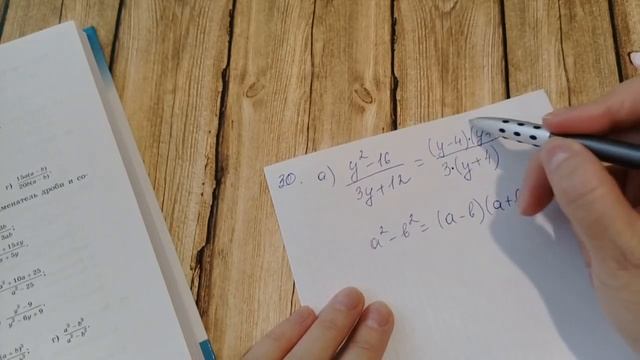 г) 15a(a − b) / 20b(a − b) ;
менатель дроби и со-
3ab ;
+ 15xy
+ 5y
² + 10a + 25 / a² − 25 ;
y² − 9 / y² − 6y + 9 ;
г) a³ − b³ / a² − b² .
30. а) y² − 16 / 3y + 12 = (y − 4)·(y / 3·(y + 4)
a² − b² = (a − b)(a +